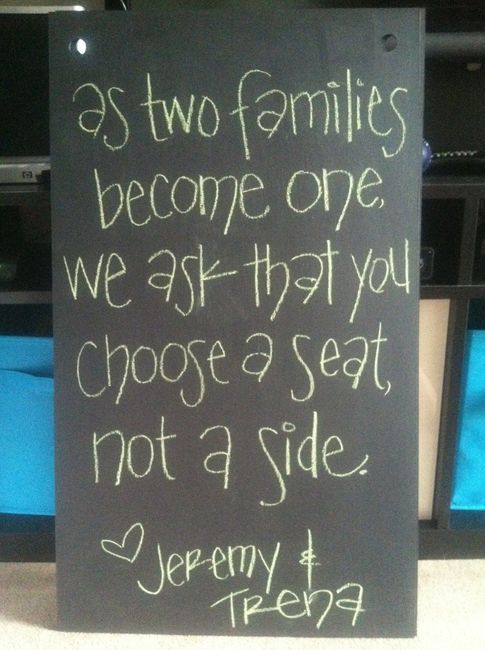 as two families
become one,
we ask that you
choose a seat,
not a side.
♡ Jeremy &
Trena